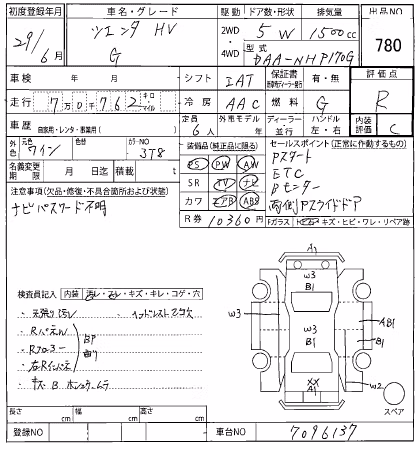 初度登録年月 車名・グレード 駆動 ドア数・形状 排気量 出品NO
29/6月 シエンタ HV G 2WD 4WD 5 W 1500cc 780
型式 DAA-NHP170G
車検 年 月 シフト IAT 保証書 有・無 評価点
走行 7万0千762 キロ マイル 冷房 AAC 燃料 G R
車歴 自家用・レンタ・事業用( ) 定員 6人 外車モデル 年 ディーラー 並行 ハンドル 左・右 内装評価 C
外色 元色 ワイン 色替 カラーNO 3T8
装備品(純正品に限る) セールスポイント(正常に作動するもの)
名義変更期限 月 日迄 積載 t
PS PW AW Pスタート
SR TV ナビ ETC
カワ エアB ABS Bモニター
両側Pスライドドア
注意事項(欠品・修復・不具合箇所および状態)
ナビパスワード不明
R券 10360円 Fガラス キズ・ヒビ・ワレ・リペア跡
検査員記入 内装 汚レ・スレ・キズ・キレ・コゲ・穴
A1
W3
B1
W3
W3
B1
AB1
B1
XX
A1
W2
スペア
長さ cm 幅 cm 高さ cm
登録NO 車台NO 7096137